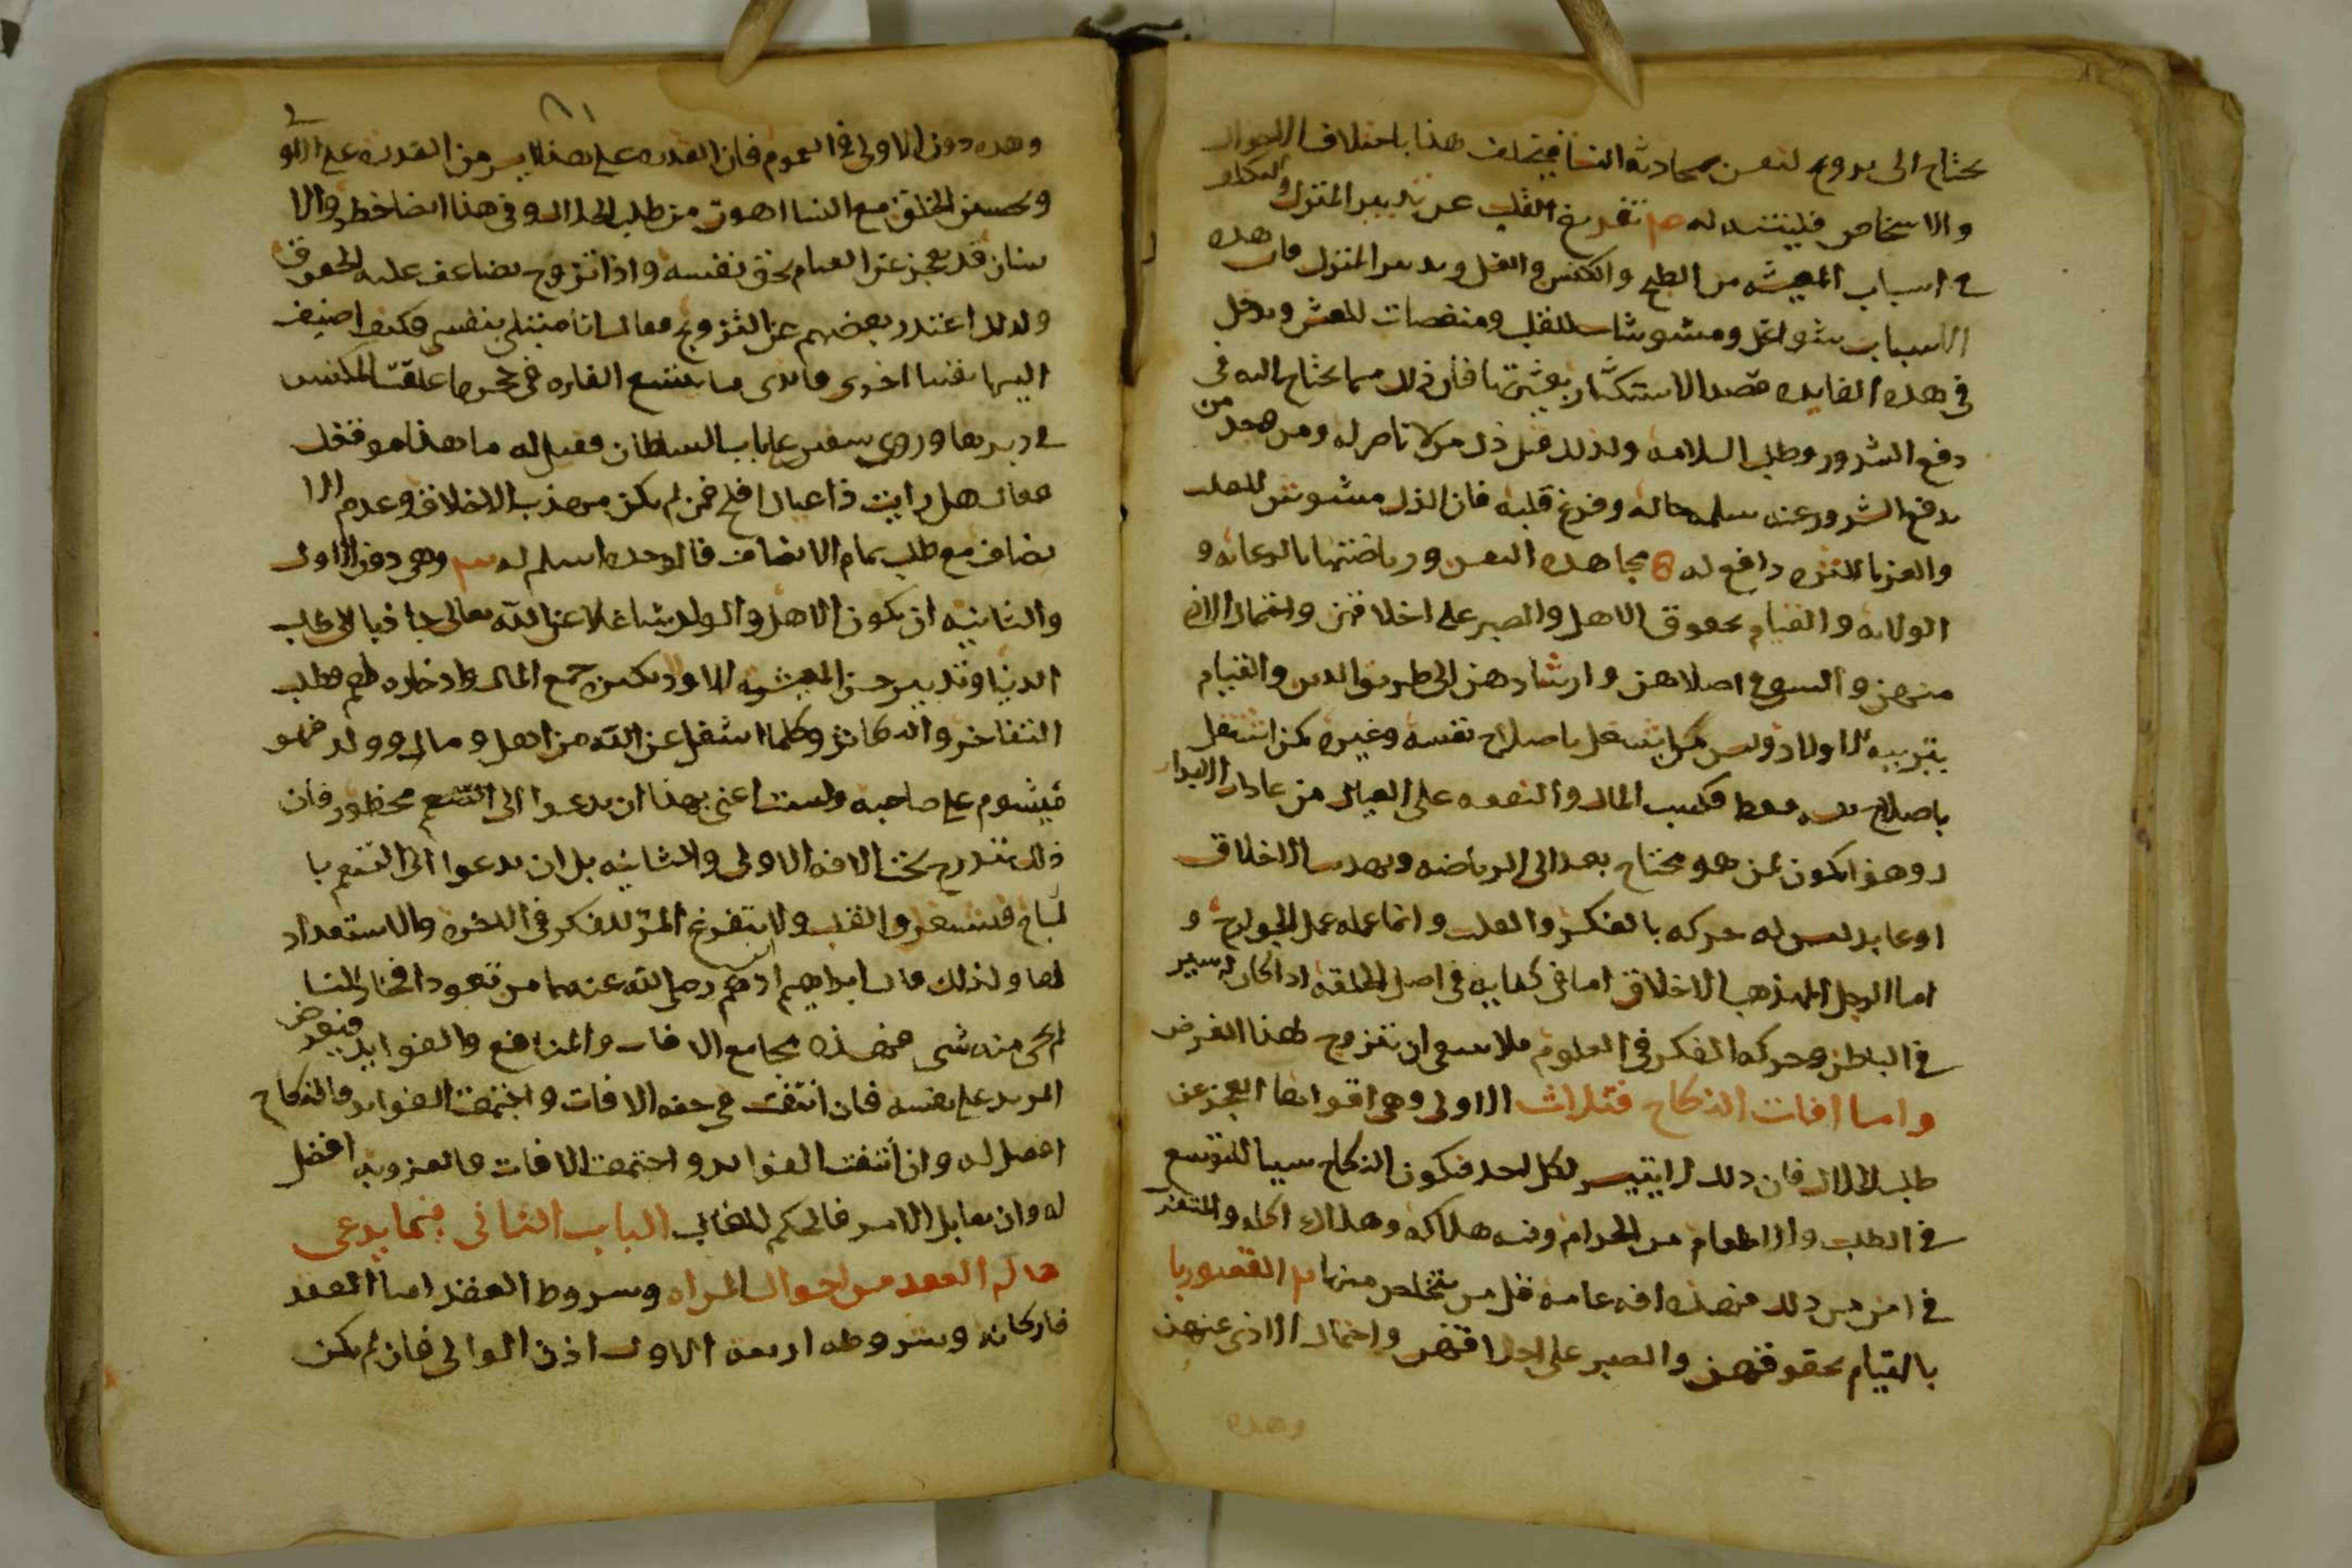 يحتاج الى يروح لنفس بمحادثه النسا فيختلف هذا باختلاف الاحوال
والاشخاص فليتنبه له تفريغ القلب عن تدبير المنزل والتكلف
في اسباب المعيشه من الطبخ والكنس والغسل وتدبير المنزل فان هذه
الاسباب شواغل ومشوشات للقلب ومنغصات للعيش ويدخل
في هذه الفايده قصد الاستكثار بعشيرتها فان ذلك مما يحتاج اليه في
دفع الشرور وطلب السلامه ولذلك قيل ذل من لا ناصر له ومن وجد من
يدفع الشرور عنه سلم حاله وفرغ قلبه فان الذل مشوش للقلب
والعز بالكثره دافع له 8 مجاهده النفس ورياضتها بالرعايه و
الولايه والقيام بحقوق الاهل والصبر على اخلاقهن واحتمال الاذى
منهن والسعي في اصلاحهن وارشادهن الى طريق الدين والقيام
بتربيه الاولاد وليس من اشتغل باصلاح نفسه وغيره كمن اشتغل
باصلاح نفسه فقط فكسب المال والنفقه على العيال من عادات الابدا
ل وهذا يكون لمن هو محتاج بعد الى الرياضه وتهذيب الاخلاق
او عابد ليس له حركه بالفكر والقلب وانما عمله عمل الجوارح و
اما الرجل المهذب الاخلاق اما في كفايه في اصل الخلقه اذا كان له سير
في الباطن وحركه الفكر في العلوم فلا ينبغي ان يتزوج لهذا الغرض
واما افات النكاح فثلاث الاولى وهي اقواها العجز عن
طلب الحلال فان ذلك لا يتيسر لكل احد فيكون النكاح سببا للتوسع
في الطلب والاطعام من الحرام وفيه هلاكه وهلاك اهله والمتعزب
في امن من ذلك فهذه افه عامه قل من يتخلص منها القصور با
بالقيام بحقوقهن والصبر على اخلاقهن واحتمال الاذى عنهن
وهذه
وهذه دون الاولى في العموم فان القدره على هذا ايسر من القدره على الاولى
وتحسين الخلق مع النسا اهون من طلب الحلال وفي هذا ايضا خطر والا
نسان قد يعجز عن القيام بحق نفسه واذا تزوج تضاعف عليه الحقوق
ولذلك اعتذر بعضهم عن التزوج فقال انا مبتلى بنفسي وكيف اضيف
اليها نفسا اخرى ما يسع الفاره في جحرها علقت المكنس
في دبرها وروي سفين على باب السلطان فقيل له ما هذا موقفك
فقال هل رايت ذا عيال افلح فمن لم يكن مهذب الاخلاق وعدم الا
نصاف مع طلب تمام الانصاف فالوحده اسلم له وهي دون الاولى
والثانيه ان يكون الاهل والولد شاغلا عن الله تعالى جاذبا الى طلب
الدنيا وتدبير حسن المعيشه للاولاد بكثره جمع المال وادخاره لهم وطلب
التفاخر والتكاثر وكلما اشغل عن الله من اهل ومال وولد فهو
ميشوم على صاحبه ولست اعني بهذا ان يدعوا الى محظور فان
ذلك يندرج تحت الافه الاولى والثانيه بل ان يدعوا الى التنعم با
لمباح فيستغرق القلب ولا يتفرغ المرء للفكر في الاخره والاستعداد
لها ولذلك قال ابراهيم ادهم رضي الله عنهما من تعود افخاذ النسا
لم يجى منه شى فهذه مجامع الافات والمنافع والفوايد فيعرض
المريد على نفسه فان انتفت في حقه الافات واجتمعت الفوايد فالنكاح
افضل له وان انتفت الفوايد واجتمعت الافات فالعزوبه افضل
له وان تقابل الامر فالحكم للغالب الباب الثانى فيما يرعى
حاله العقد من احوال المراه وشروط العقد اما العقد
فاركانه وشروطه اربعه الاول اذن الوالى فان لم يكن